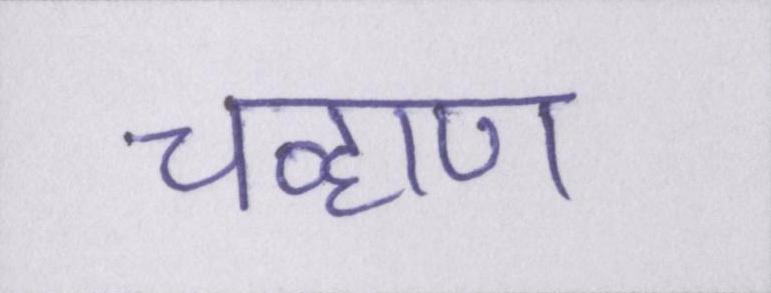 चव्हाण